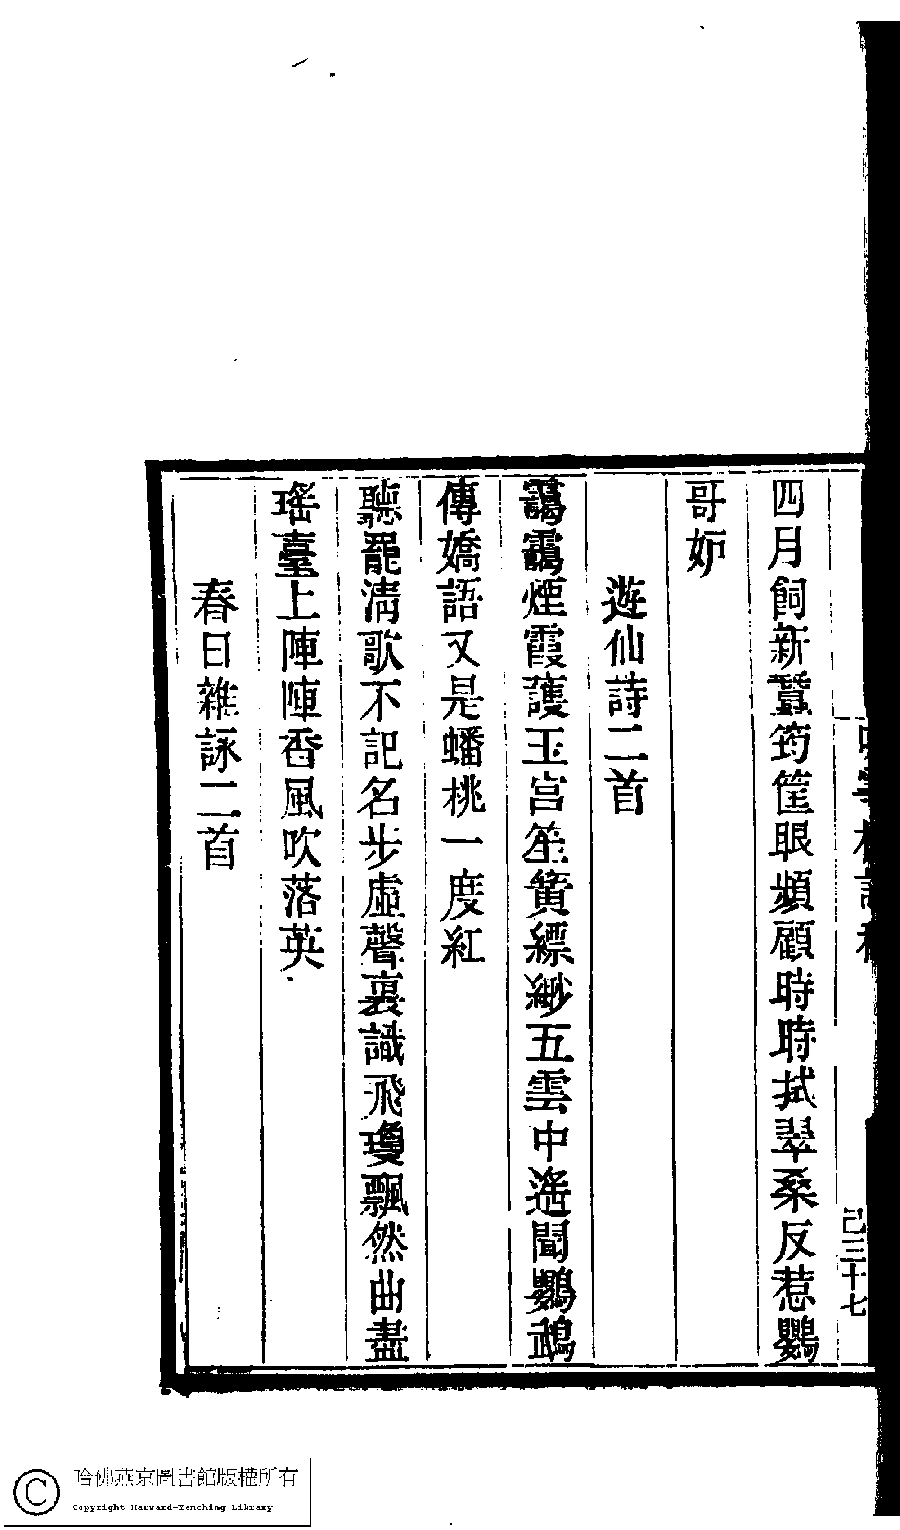 四月飼新蠶筠筐眼頻顧時時拭翠桑反惹鸚
哥妒
遊仙詩二首
靄靄煙霞護玉宮笙簧縹緲五雲中遙聞鸚鵡
傳嬌語又是蟠桃一度紅
聽罷清歌不記名步虛聲裏識飛瓊飄然曲盡
瑤臺上陣陣香風吹落英
春日雜詠二首
己三十七
哈佛燕京圖書館版權所有
Copyright Harvard-Yenching Library